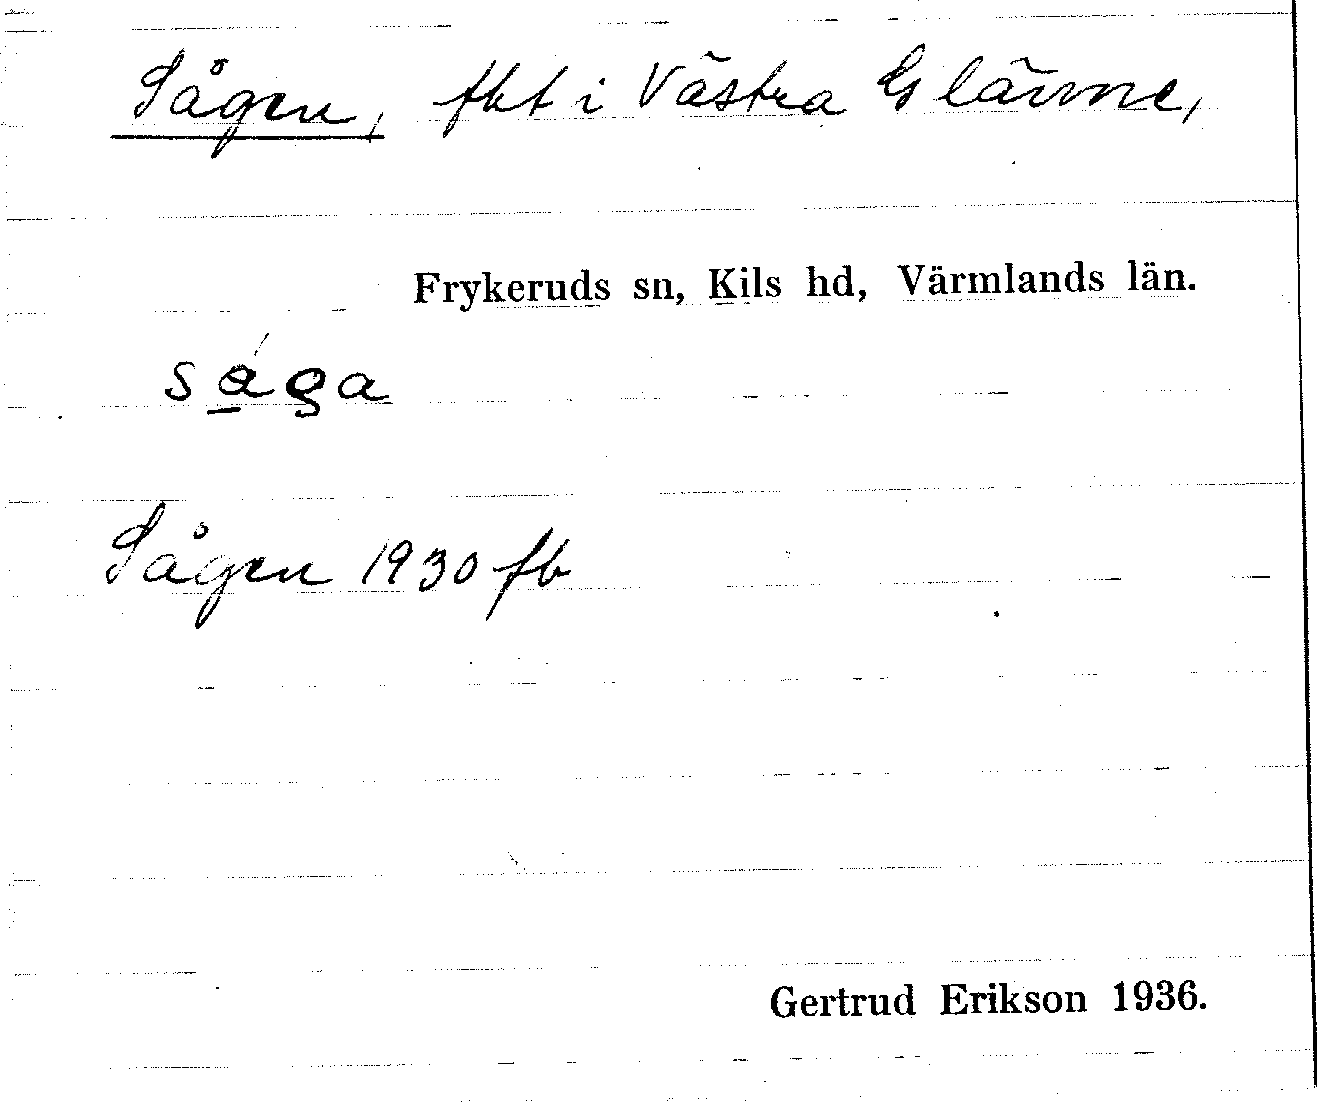 Sågen, fbt i Västra Glänne,
Frykeruds sn, Kils hd, Värmlands län.
Sågen 1930 fb
Gertrud Erikson 1936.